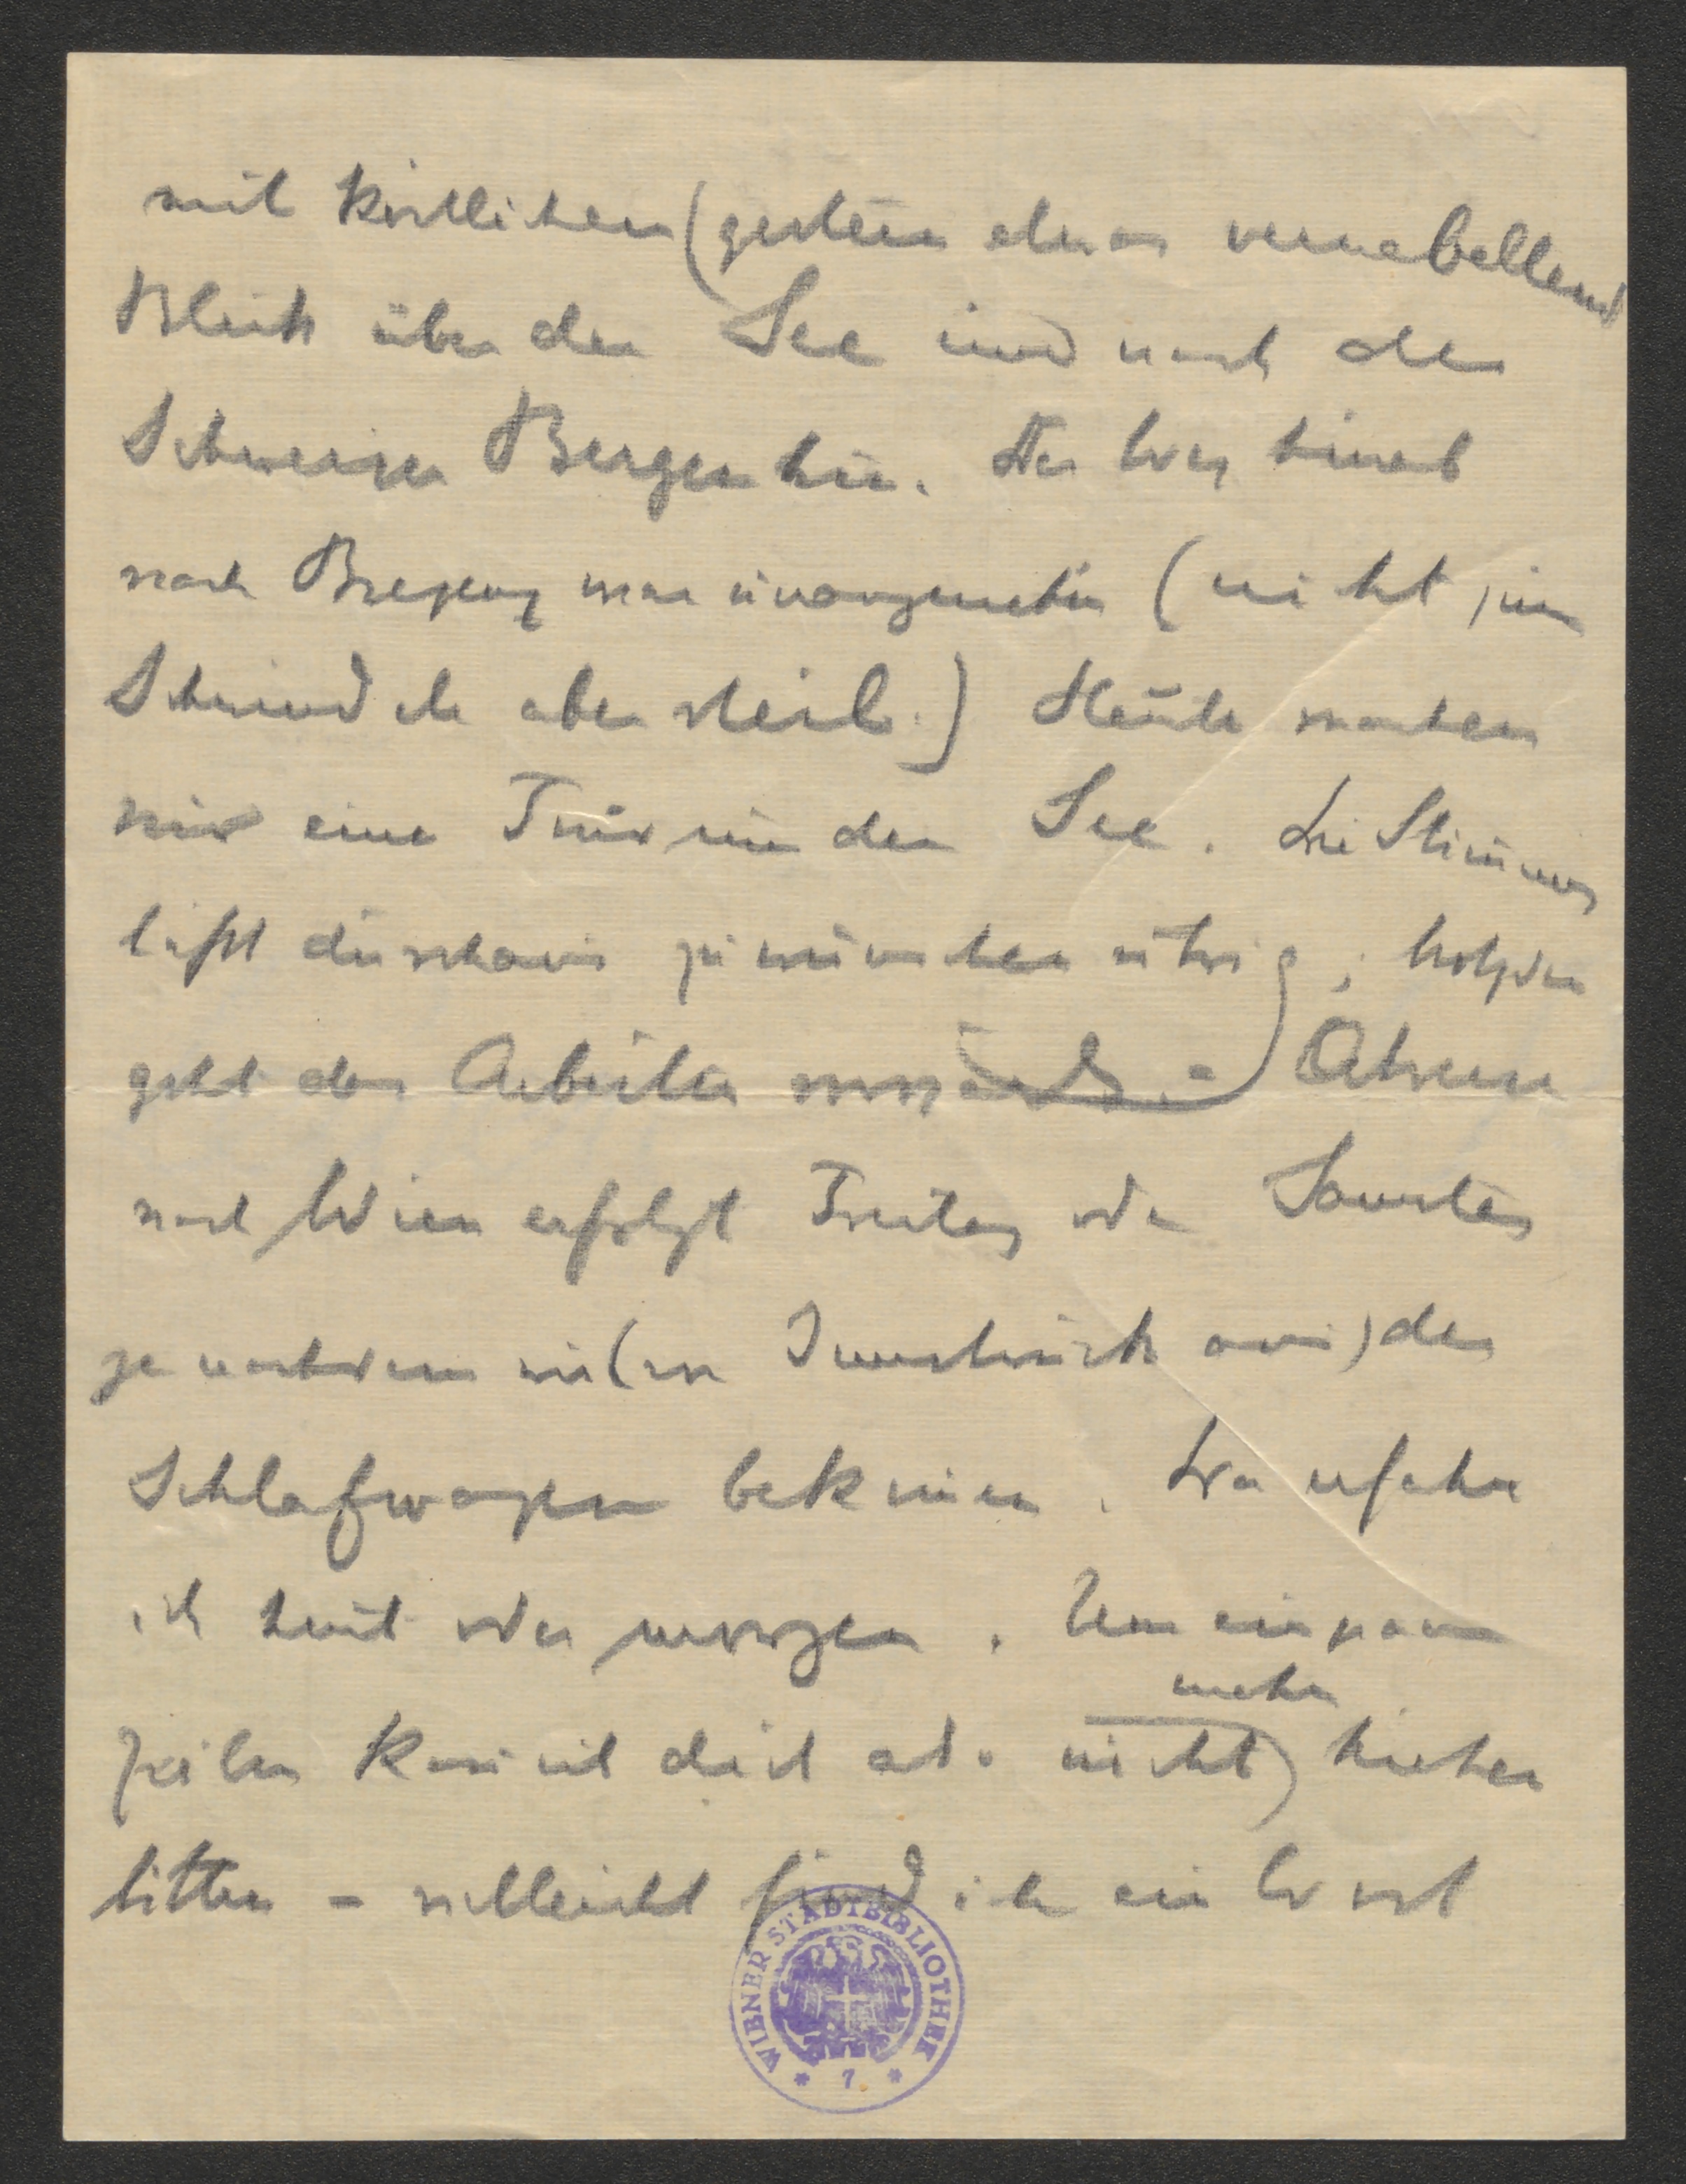 mit köstlichem (gestern etwas vernebelten)
Blick über den See und nach den
Schweizer Bergen hin. Der Weg hinab
nach Bregenz war unangenehm (nicht im
Schwindel aber steil.) Heute machen
wir eine Tour um den See. Die Stimmung
läßt durchaus zu wünschen übrig; trotzdem
geht das Arbeiten vorwärts. – Abreise
nach Wien erfolgt Freitag oder Samstag
je nachdem wir (von Innsbruck aus) den
Schlafwagen bekommen. Das erfahre
ich heut oder morgen. Um ein paar
mehr
Zeilen kann ich dich also nicht hieher
bitten – vielleicht find ich ein Wort
WIENER STADTBIBLIOTHEK
* 7. *